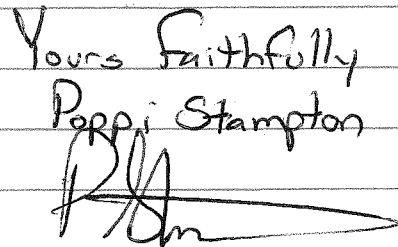 Yours Faithfully
Poppi Stampton